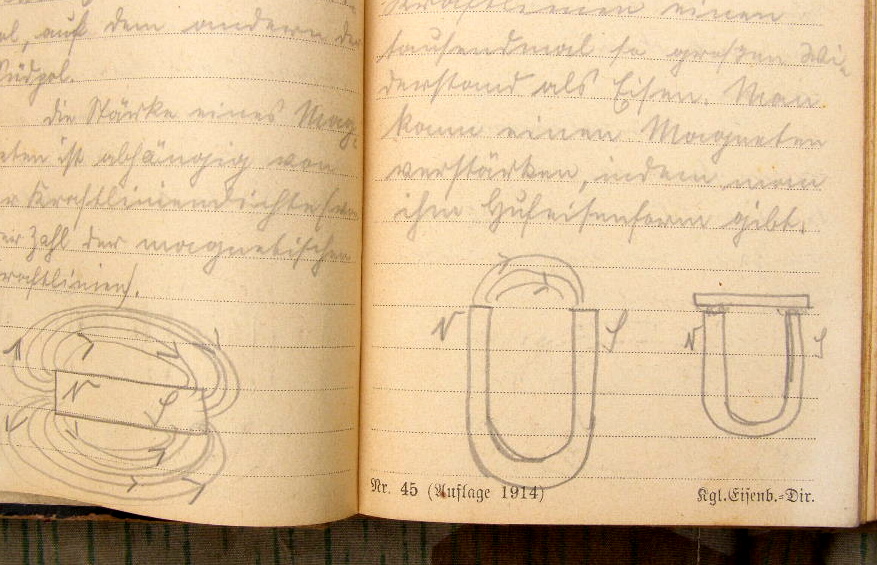 ol, auf dem anderen der
Südpol.
Die Stärke eines Mag-
eten ist abhängig von
r Kraftliniendichte (von
er Zahl der magnetischen
raftlinien).
N
S
Kraftlinien einen
tausendmal so großen Wi-
derstand als Eisen. Man
kann einen Magneten
verstärken, indem man
ihm Hufeisenform gibt.
N S
N S
Nr. 45 (Auflage 1914)
Kgl. Eisenb.-Dir.